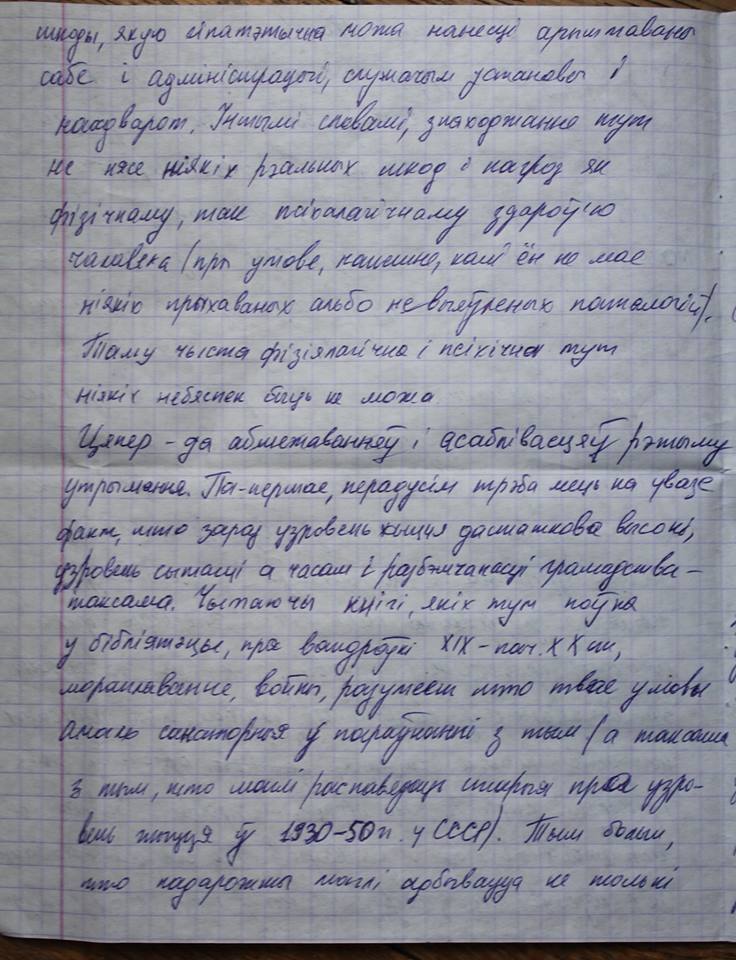 шкоды, якую гіпатэтычна можа нанесці арыштаваны
сабе і адміністрацыі, служачым установы і
наадварот. Іншымі словамі, знаходжанне тут
не нясе ніякіх рэальных шкод і пагроз як
фізічнаму, так псіхалагічнаму здароўю
чалавека (пры умове, канешне, калі ён не мае
ніякіх прыхаваных альбо невыяўленых паталогій).
Таму чыста фізіялагічна і псіхічна тут
ніякіх небяспек быць не можа.
Цяпер – да абмежаванняў і асаблівасцяў рэжыму
утрымання. Па-першае, перадусім трэба мець на увазе
факт, што зараз узровень жыцця дастаткова высокі,
узровень сытасці а часам і разбэшчанасці грамадства –
таксама. Чытаючы кнігі, якіх тут поўна
у бібліятэцы, пра вандроўкі XIX – пач. XX ст,
мораплаванне, войны, разумееш што твае умовы
амаль санаторныя ў параўнанні з тым (а таксама
з тым, што маглі распавядаць старыя пра узро-
вень жыцця ў 1930-50 гг. у СССР). Тым больш,
што падарожжы маглі адбывацца не толькі